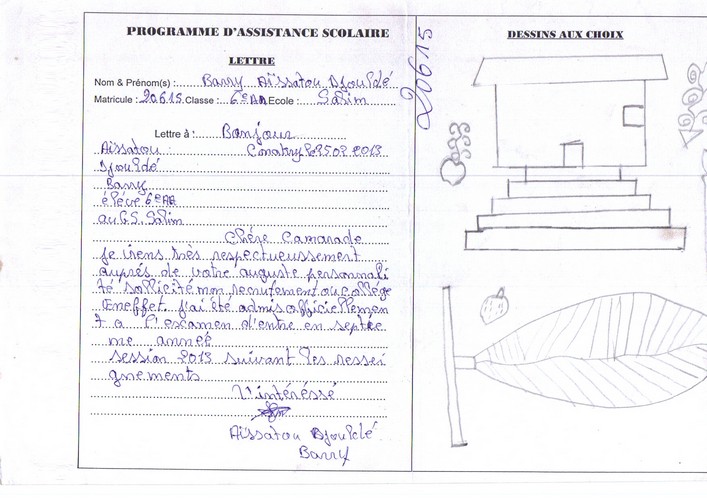 PROGRAMME D'ASSISTANCE SCOLAIRE
LETTRE
Nom & Prénom(s) : Barry Aïssatou Djouldé
Matricule : 20615 Classe : 6e AA Ecole : Salim
Lettre à : Banjour
Aïssatou Conakry le 25 02 2013
Djouldé
Barry
élève 6e AA
au G.S. Salim
Chère Camarade
Je viens très respectueussement
auprès de votre auguste personnali
té sollicité mon recrufement au collège
En effet j'ai été admis officiellemen
t a l'escamen d'entre en septiè
me année
session 2013 suivant les rensei
gnements
L'intéréssé
Aïssatou Djouldé
Barry
20615
DESSINS AUX CHOIX